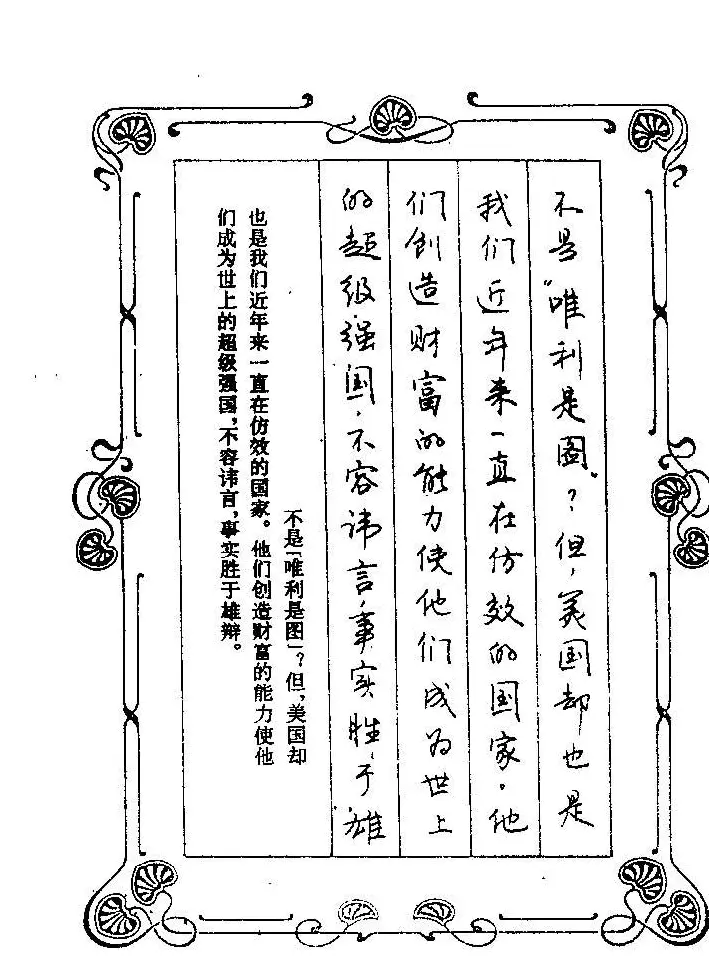 不是“唯利是图”？但，美国却也是
我们近年来一直在仿效的国家。他
们创造财富的能力使他们成为世上
的超级强国，不容讳言，事实胜于雄
不是「唯利是图」？但，美国却
也是我们近年来一直在仿效的国家。他们创造财富的能力使他
们成为世上的超级强国，不容讳言，事实胜于雄辩。